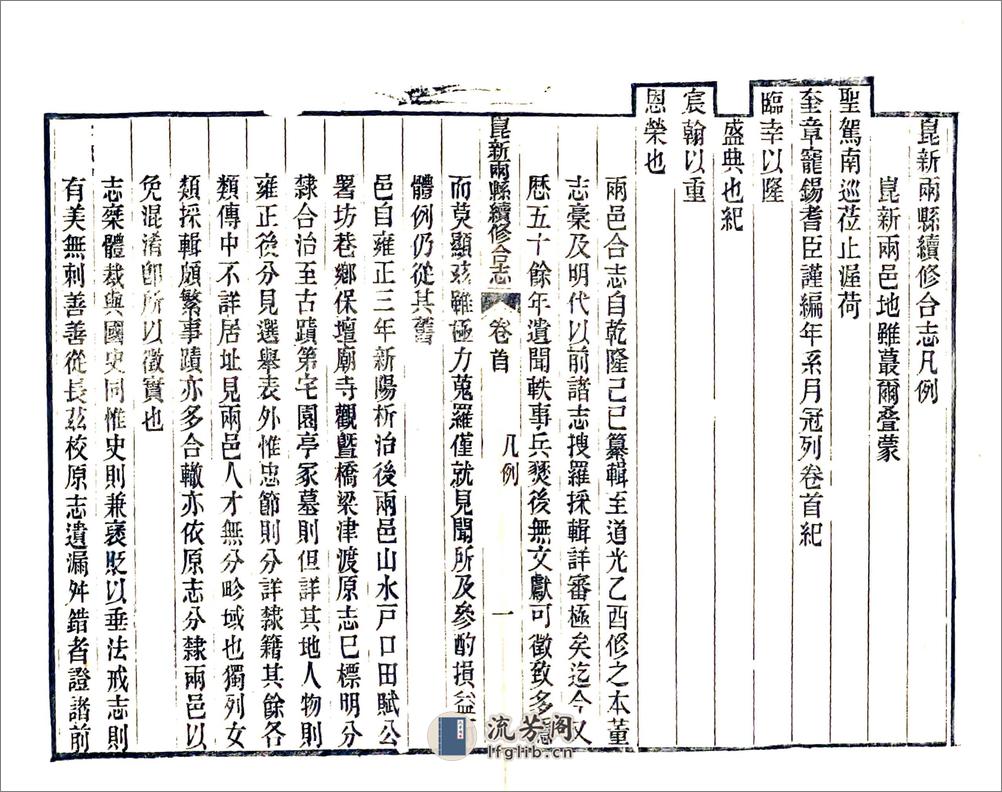 崑新兩縣續修合志凡例
崑新兩邑地雖蕞爾疊蒙
聖駕南巡蒞止渥荷
奎章寵錫耆臣謹編年系月冠列卷首紀
臨幸以隆
盛典也紀
宸翰以重
恩榮也
兩邑合志自乾隆己巳纂輯至道光乙酉修之本董
志豪及明代以前諸志搜羅採輯詳審極矣迄今又
歷五十餘年遺聞軼事兵燹後無文獻可徵致多隱
崑新兩縣續修合志 卷首 凡例 一
而莫顯茲雖極力蒐羅僅就見聞所及參酌損益
體例仍從其舊
邑自雍正三年新陽析治後兩邑山水戸口田賦公
署坊巷鄉保壇廟寺觀曁橋梁津渡原志已標明分
隸合治至古蹟第宅園亭冢墓則但詳其地人物則
雍正後分見選舉表外惟忠節則分詳隸籍其餘各
類傳中不詳居址見兩邑人才無分畛域也獨列女
類採輯頗繁事蹟亦多合轍亦依原志分隸兩邑以
免混淆卽所以徵實也
志乘體裁與國史同惟史則兼褒貶以垂法戒志則
有美無刺善善從長茲校原志遺漏舛錯者證諸前
流芳阁
lfglib.cn